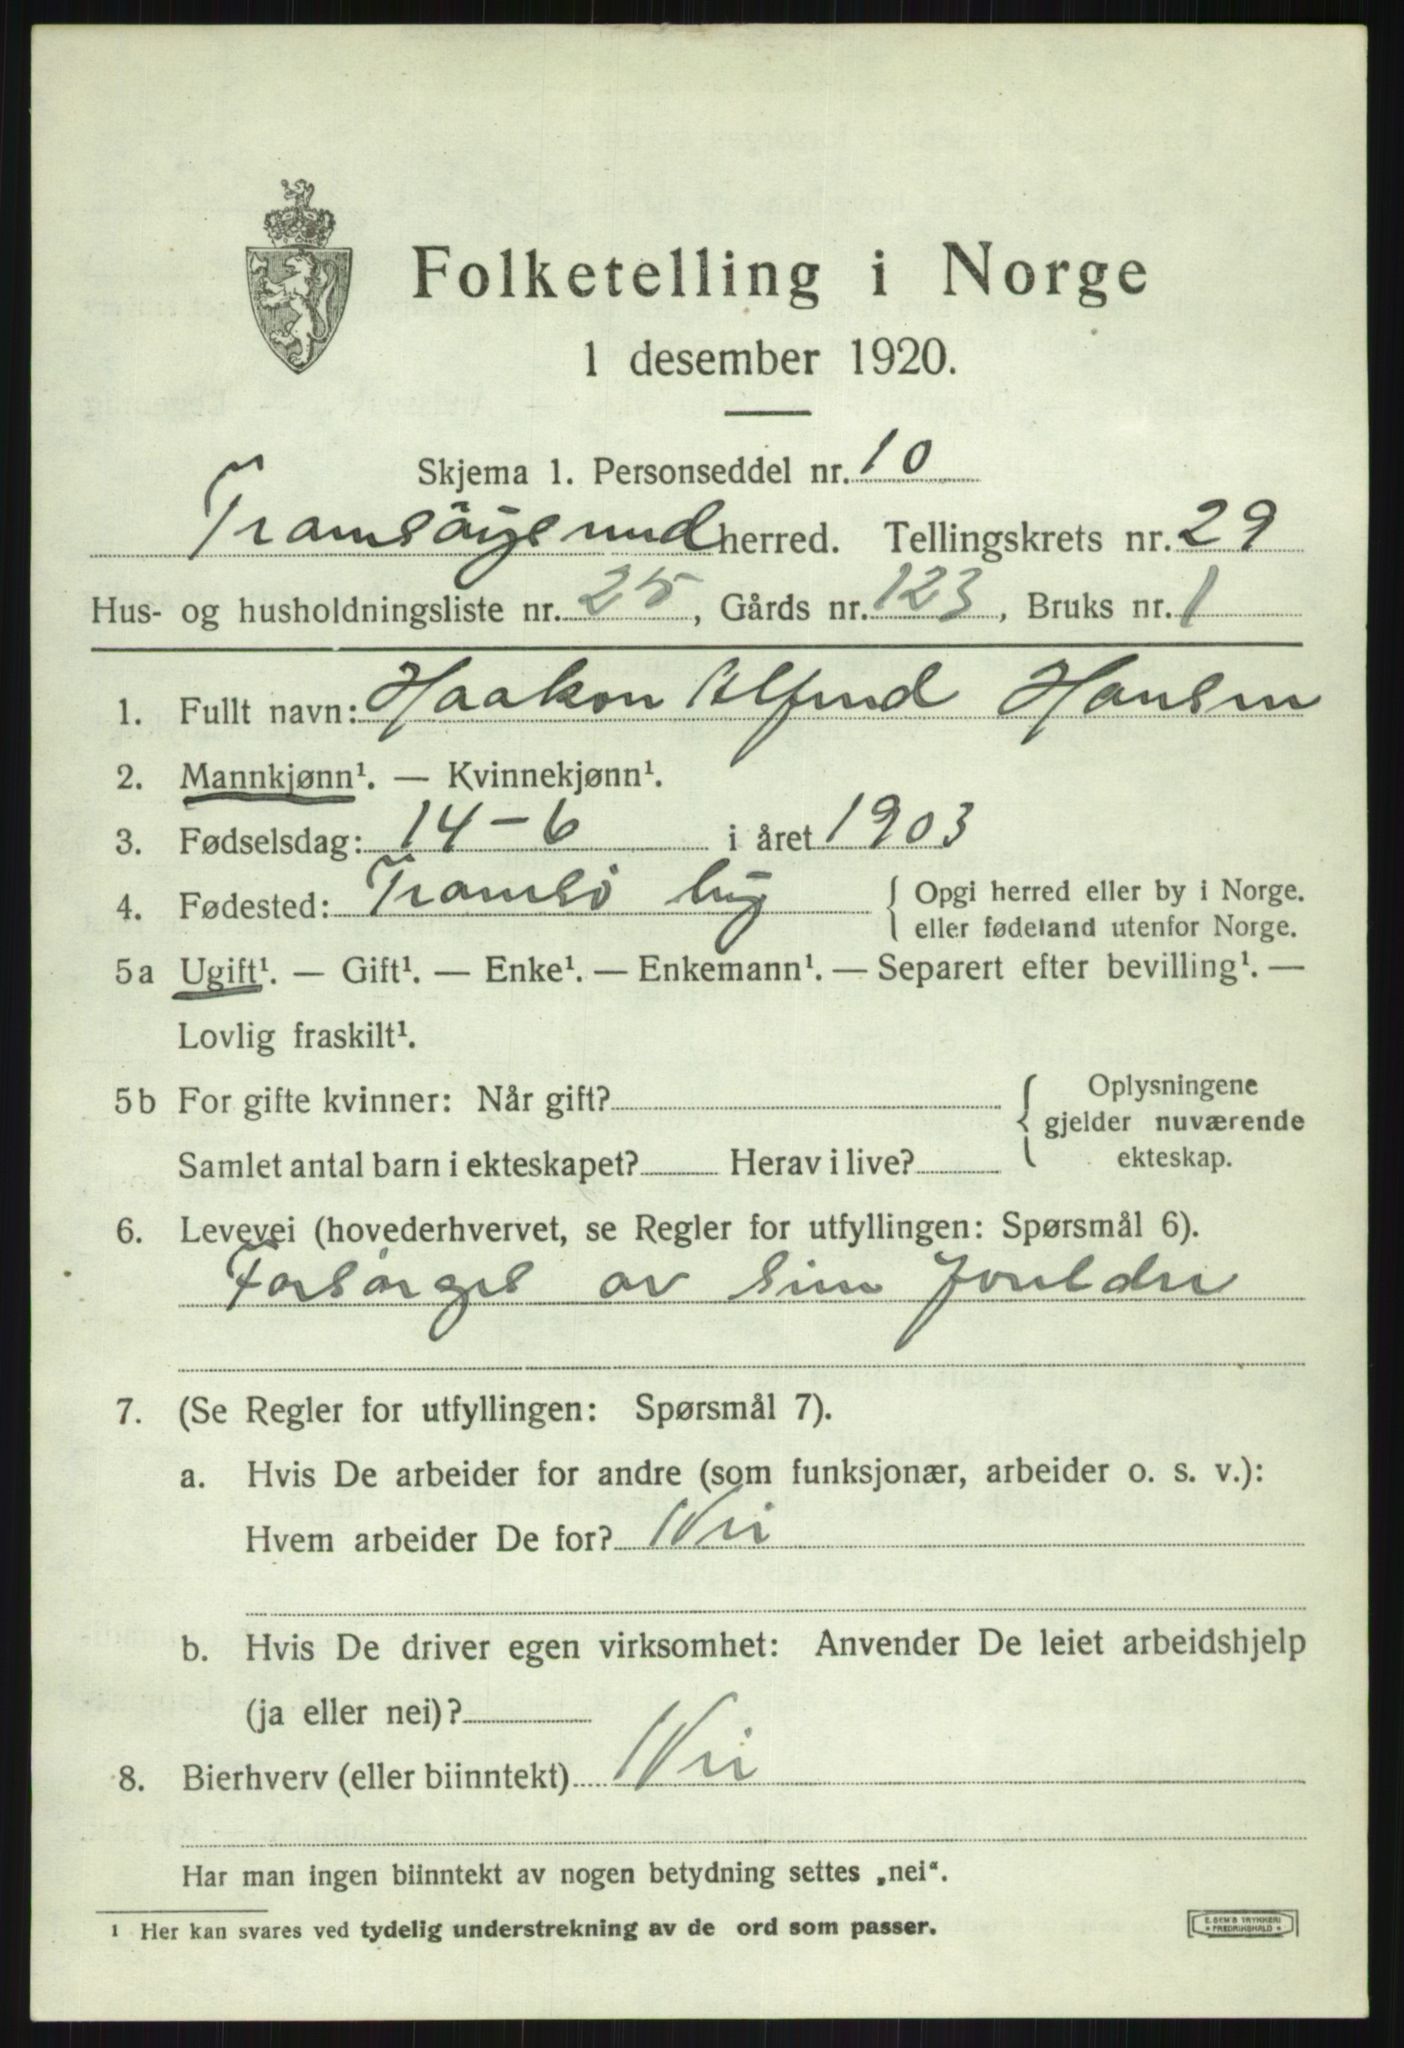 Folketelling i Norge
1 desember 1920.
Skjema 1. Personseddel nr. 10
Tromsøysund herred. Tellingskrets nr. 29
Hus- og husholdningsliste nr. 25, Gårds nr. 123, Bruks nr. 1
1. Fullt navn: Haakon Alfred Hansen
2. Mannkjønn¹. — Kvinnekjønn¹.
3. Fødselsdag: 14-6 i året 1903
4. Fødested: Tromsø by { Opgi herred eller by i Norge.
eller fødeland utenfor Norge.
5a Ugift¹. — Gift¹. — Enke¹. — Enkemann¹. — Separert efter bevilling¹. —
Lovlig fraskilt¹.
5b For gifte kvinner: Når gift? { Oplysningene
gjelder nuværende
Samlet antal barn i ekteskapet? Herav i live? ekteskap.
6. Levevei (hovederhvervet, se Regler for utfyllingen: Spørsmål 6).
Forsørges av sine foreldre
7. (Se Regler for utfyllingen: Spørsmål 7).
a. Hvis De arbeider for andre (som funksjonær, arbeider o. s. v.):
Hvem arbeider De for? Nei
b. Hvis De driver egen virksomhet: Anvender De leiet arbeidshjelp
(ja eller nei)?
8. Bierhverv (eller biinntekt) Nei
Har man ingen biinntekt av nogen betydning settes „nei“.
1 Her kan svares ved tydelig understrekning av de ord som passer.
E. SEM'S TRYKKERI
* FREDRIKSHALD *